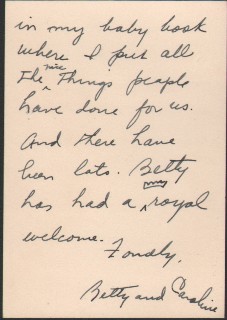 in my baby book
where I put all
the nice things people
have done for us.
And there have
been lots. Betty
has had a very royal
welcome.
Fondly,
Betty and Caroline